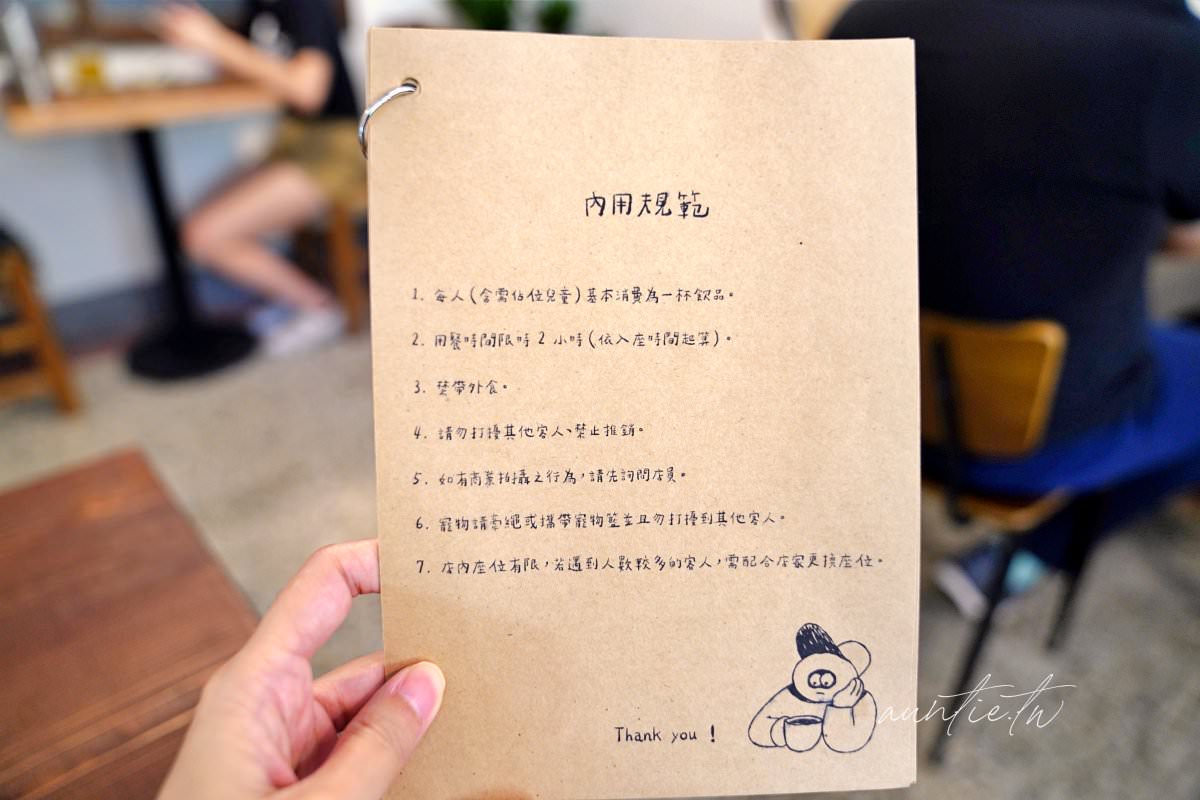 內用規範
1. 每人(含需佔位兒童)基本消費為一杯飲品。
2. 用餐時間限時 2 小時(依入座時間起算)。
3. 禁帶外食。
4. 請勿打擾其他客人、禁止推銷。
5. 如有商業拍攝之行為,請先詢問店員。
6. 寵物請牽繩或攜帶寵物籃並且勿打擾到其他客人。
7. 店內座位有限,若遇到人數較多的客人,需配合店家更換座位。
Thank you !
auntie.tw